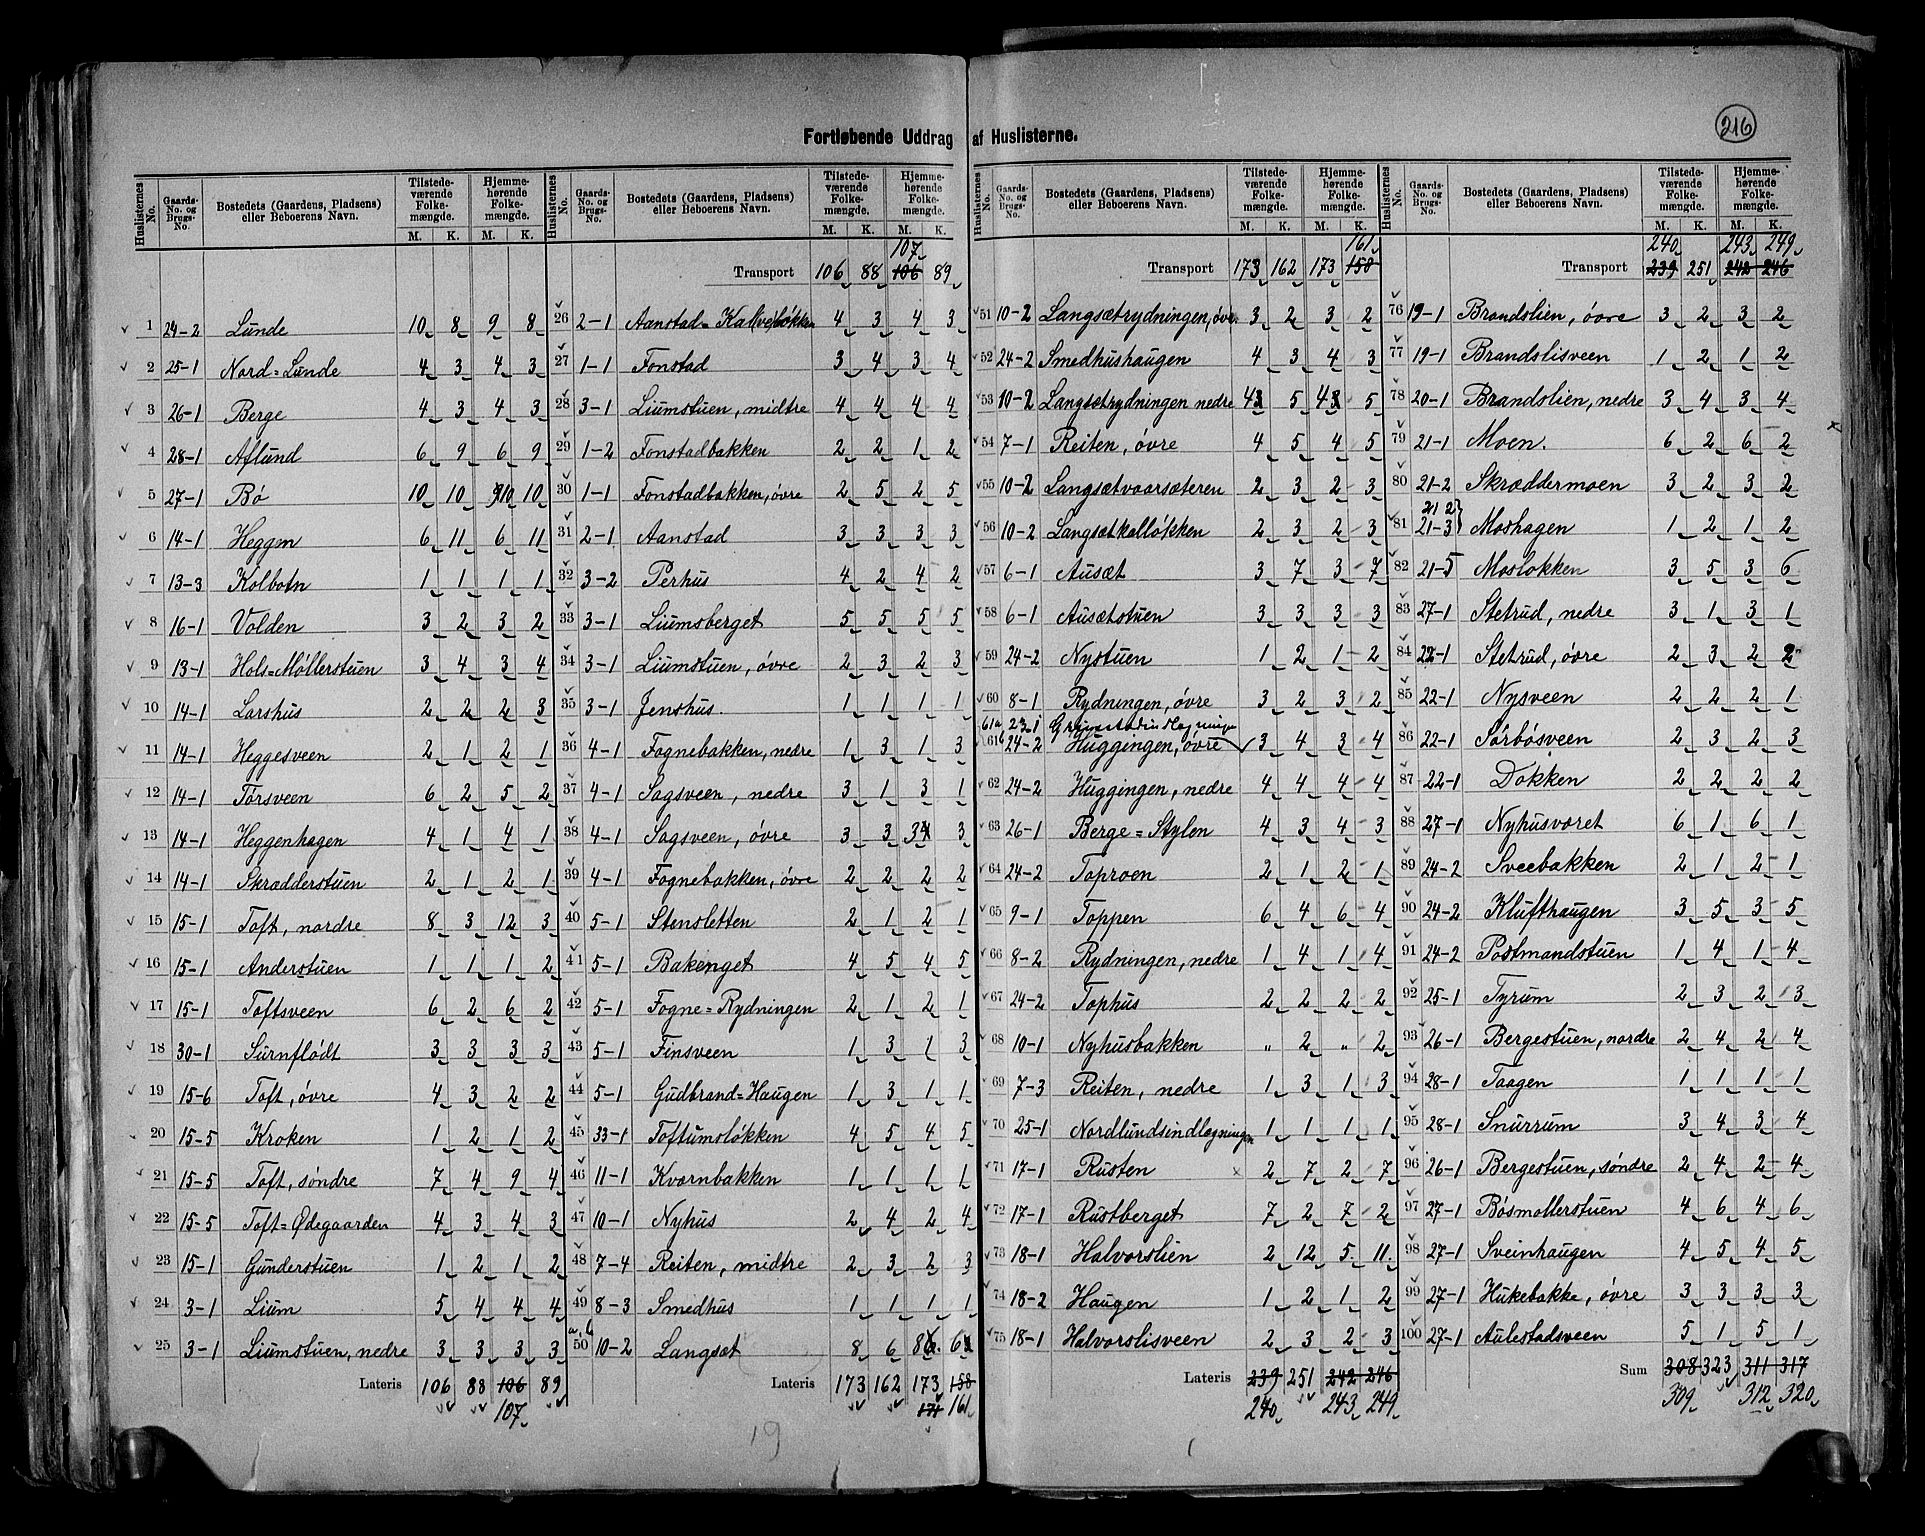 216
Fortløbende Uddrag af Huslisterne.
Huslisternes No. Gaards-No. og Brugs-No. Bostedets (Gaardens, Pladsens) eller Beboerens Navn. Tilstedeværende Folkemængde. M. K. Hjemmehørende Folkemængde. M. K.
1 24-2 Lunde 10 8 9 8
2 25-1 Nord=Lunde 4 3 4 3
3 26-1 Berge 4 3 4 3
4 28-1 Aflund 6 9 6 9
5 27-1 Bö 10 10 10 10
6 14-1 Heggen 6 11 6 11
7 13-3 Kolbotn 1 1 1 1
8 16-1 Volden 3 2 3 2
9 13-1 Hols=Möllerstuen 3 4 3 4
10 14-1 Larshus 2 2 2 3
11 14-1 Heggesveen 2 1 2 1
12 14-1 Törsveen 6 2 5 2
13 14-1 Heggenhagen 4 1 4 1
14 14-1 Skrædderstuen 2 1 2 1
15 15-1 Toft, nordre 8 3 12 3
16 15-1 Anderstuen 1 1 1 2
17 15-1 Toftsveen 6 2 6 2
18 30-1 Surnflödt 3 3 3 3
19 15-6 Toft, övre 4 3 2 2
20 15-5 Kroken 1 2 1 2
21 15-5 Toft, söndre 7 4 9 4
22 15-5 Toft=Ødegaarden 4 3 4 3
23 15-1 Gunderstuen 1 2 1 2
24 3-1 Lium 5 4 4 4
25 3-1 Liumstuen, nedre 3 3 3 3
Lateris 106 88 106 89
107
Huslisternes No. Gaards-No. og Brugs-No. Bostedets (Gaardens, Pladsens) eller Beboerens Navn. Tilstedeværende Folkemængde. M. K. Hjemmehørende Folkemængde. M. K.
107
Transport 106 88 106 89
26 2-1 Aanstad=Kalveløkken 4 3 4 3
27 1-1 Fonstad 3 4 3 4
28 3-1 Liumstuen, midtre 4 4 4 4
29 1-2 Fonstadbakken 2 2 1 2
30 1-1 Fonstadbakken, övre 2 5 2 5
31 2-1 Aanstad 3 3 3 3
32 3-2 Perhus 4 2 4 2
33 3-1 Liumsberget 5 5 5 5
34 3-1 Liumstuen, övre 2 3 2 3
35 3-1 Jenshus. 1 1 1 1
36 4-1 Fognebakken, nedre 1 3 1 3
37 4-1 Sagsveen, nedre 3 1 3 1
38 4-1 Sagsveen, övre 3 3 3 3
39 4-1 Fognebakken, övre 2 2 2 2
40 5-1 Stensletten 2 1 2 1
41 5-1 Bakenget 4 5 4 5
42 5-1 Fogne=Rydningen 2 1 2 1
43 5-1 Finsveen 1 3 1 3
44 5-1 Gudbrand=Haugen 1 3 1 1
45 33-1 Toftumslökken 4 5 4 5
46 11-1 Kværnbakken 1 1 1 1
47 10-1 Nyhus 2 4 2 4
48 7-4 Reiten, midtre 2 3 2 3
49 8-3 Smedhus 1 1 1 1
a, b
50 10-2 Langsæt 8 6 8 6
Lateris 173 162 173 158
171 161
19
Huslisternes No. Gaards-No. og Brugs-No. Bostedets (Gaardens, Pladsens) eller Beboerens Navn. Tilstedeværende Folkemængde. M. K. Hjemmehørende Folkemængde. M. K.
161
Transport 173 162 173 158
51 10-2 Langsætrydningen, övr. 3 2 3 2
52 24-2 Smedhushaugen 4 3 4 3
53 10-2 Langsætrydningen nedre 43 5 43 5
54 7-1 Reiten, övre 4 5 4 5
55 10-2 Langsætvaarsæteren 2 3 2 3
56 10-2 Langsætkalløkken 2 3 2 3
57 6-1 Ausæt 3 7 3 7
58 6-1 Ausætstuen 3 3 3 3
59 24-2 Nystuen 1 2 1 2
60 8-1 Rydningen, övre 3 2 3 2
61a 23-1 Grimstadindlægninge
61b 24-2 Huggingen, övre 3 4 3 4
62 24-2 Huggingen, nedre 4 4 4 4
63 26-1 Berge=Stylen 4 3 4 3
64 24-2 Toproen 2 1 2 1
65 9-1 Toppen 6 4 6 4
66 8-2 Rydningen, nedre 1 4 1 4
67 24-2 Tophus 2 2 2 2
68 10-1 Nyhusbakken " 2 " 2
69 7-3 Reiten, nedre 1 3 1 3
70 25-1 Nordlundsindlægningen 1 1 1 1
71 17-1 Rusten × 2 7 2 7
72 17-1 Rustberget 7 2 7 2
73 18-1 Halvorslien 2 12 5 11
74 18-2 Haugen 1 2 1 2
75 18-1 Halvorslisveen 2 3 2 3
Lateris 239 251 242 246
240 243 249
Huslisternes No. Gaards-No. og Brugs-No. Bostedets (Gaardens, Pladsens) eller Beboerens Navn. Tilstedeværende Folkemængde. M. K. Hjemmehørende Folkemængde. M. K.
240 243 249
Transport 239 251 242 246
76 19-1 Brandslien, övre 3 2 3 2
77 19-1 Brandslisveen 1 2 1 2
78 20-1 Brandslien, nedre 3 4 3 4
79 21-1 Moen. 6 2 6 2
80 21-2 Skræddermoen 3 2 3 2
21 2
81 21-3 Moshagen 1 2 1 2
82 21-5 Moslökken 3 5 3 6
83 27-1 Stetrud, nedre 3 1 3 1
84 22-1 Stetrud, övre 2 3 2 2
85 22-1 Nysveen 2 2 2 1
86 22-1 Sörbösveen 2 3 2 3
87 22-1 Dokken 2 2 2 2
88 27-1 Nyhusværet 6 1 6 1
89 24-2 Sveebakken 2 1 2 1
90 24-2 Klufthaugen 3 5 3 5
91 24-2 Postmandstuen 1 4 1 4
92 25-1 Tyrum 2 3 2 3
93 26-1 Bergestuen, nordre 2 4 2 4
94 28-1 Taagen 1 1 1 1
95 28-1 Snurrum 3 4 3 4
96 26-1 Bergestuen, söndre 2 4 2 4
97 27-1 Bösmøllerstuen 4 6 4 6
98 27-1 Sveinhaugen 4 5 4 5
99 27-1 Hukebakke, övre 3 3 3 3
100 27-1 Aulestadsveen 5 1 5 1
Sum 308 323 311 317
309 312 320